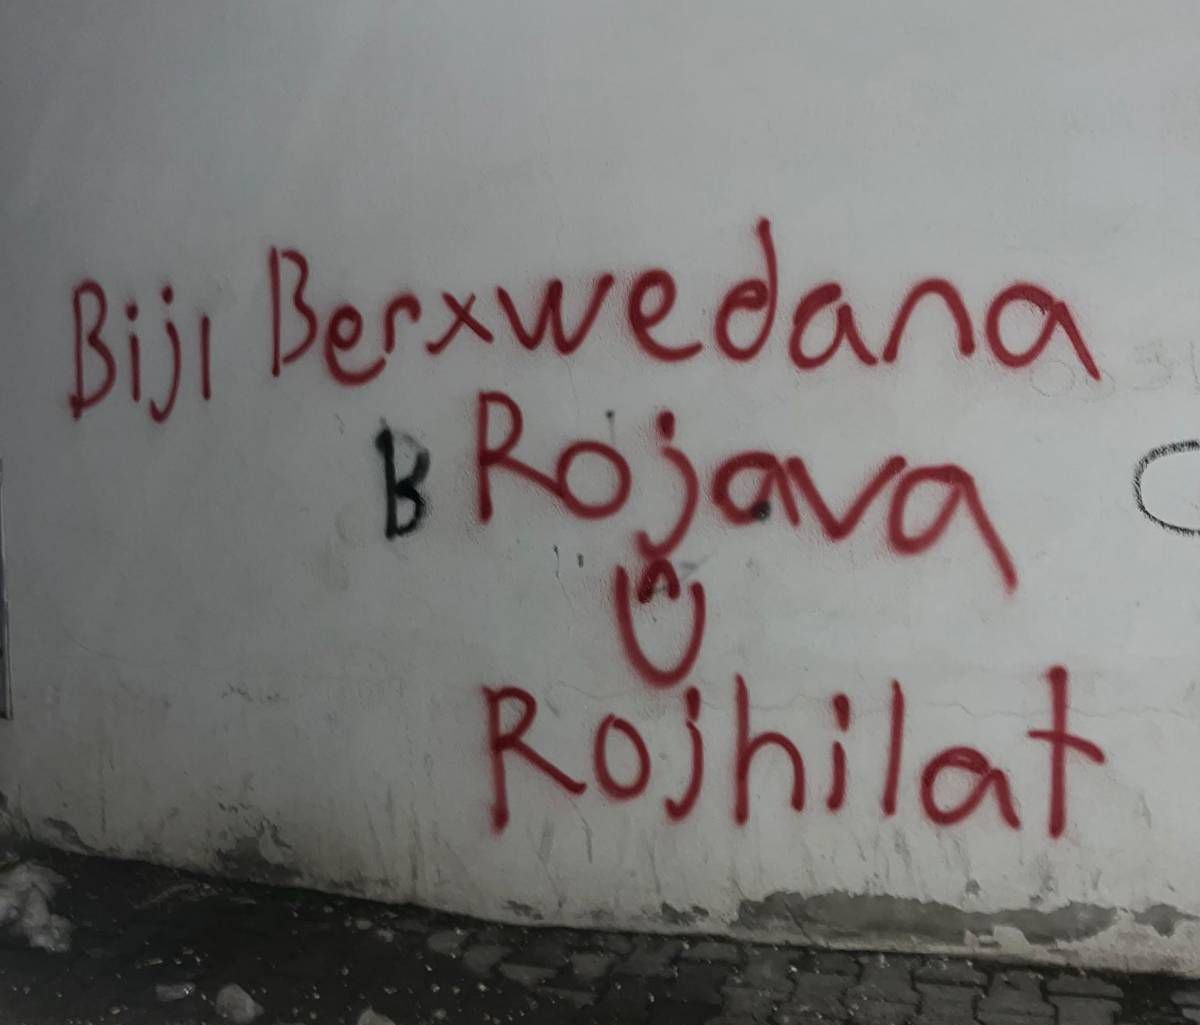 Biji Berxwedana
B Rojava
Û
Rojhilat